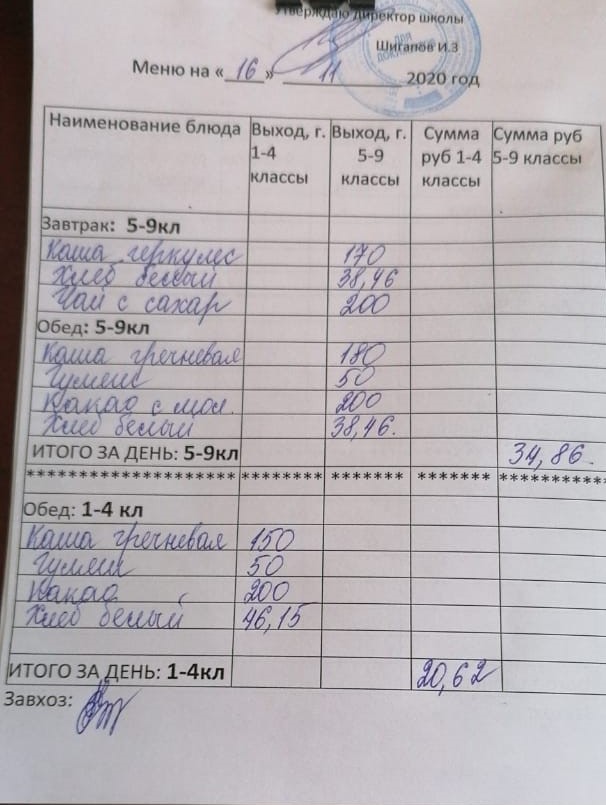 Утверждаю директор школы
Шигапов И.З
Меню на «16» 11 2020 год
Наименование блюда Выход, г. 1-4 классы Выход, г. 5-9 классы Сумма руб 1-4 классы Сумма руб 5-9 классы
Завтрак: 5-9кл
Каша геркулес 170
Хлеб белый 38,46
Чай с сахар 200
Обед: 5-9кл
Каша гречневая 180
Гуляш 50
Какао с мол. 200
Хлеб белый 38,46.
ИТОГО ЗА ДЕНЬ: 5-9кл 34,86.
********************* ******** ******* ******* **********
Обед: 1-4 кл
Каша гречневая 150
Гуляш 50
Какао 200
Хлеб белый 46,15
ИТОГО ЗА ДЕНЬ: 1-4кл 20,62
Завхоз: